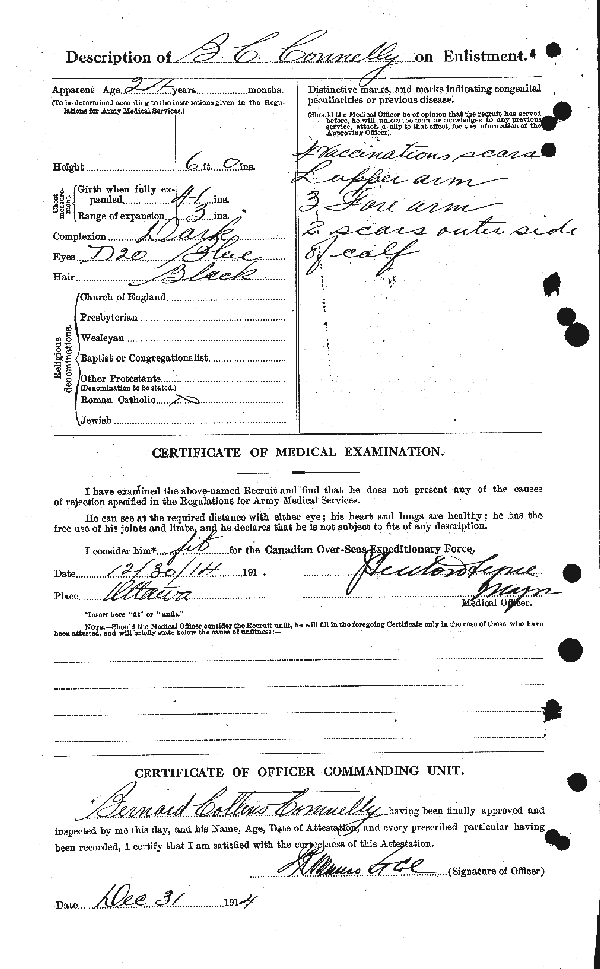 Description of B C Connelly on Enlistment.
Apparent Age 24 years months.
(To be determined according to the instructions given in the Regu-
lations for Army Medical Services.)
Height 6 ft. 0 ins.
Chest measure-
ment
Girth when fully ex-
panded 41 ins.
Range of expansion 3 ins.
Complexion Dark
Eyes Blue
Hair Black
Religious
denominations.
Church of England
Presbyterian
Wesleyan
Baptist or Congregationalist
Other Protestants
(Denomination to be stated.)
Roman Catholic
Jewish
Distinctive marks, and marks indicating congenital
peculiarities or previous disease.
(Should the Medical Officer be of opinion that the recruit has served
before, he will, unless the man acknowledges to any previous
service, attach a slip to that effect, for the information of the
Approving Officer).
4 Vaccinations scars
L upper arm
3 Fore arm
2 scars outer side
of calf
CERTIFICATE OF MEDICAL EXAMINATION.
I have examined the above-named Recruit and find that he does not present any of the causes
of rejection specified in the Regulations for Army Medical Services.
He can see at the required distance with either eye; his heart and lungs are healthy; he has the
free use of his joints and limbs, and he declares that he is not subject to fits of any description.
I consider him* fit for the Canadian Over-Seas Expeditionary Force.
Date 12/30/14 191 .
Place Ottawa
Medical Officer.
*Insert here "fit" or "unfit."
NOTE.—Should the Medical Officer consider the Recruit unfit, he will fill in the foregoing Certificate only in the case of those who have
been attested, and will briefly state below the cause of unfitness:—
CERTIFICATE OF OFFICER COMMANDING UNIT.
Bernard Collins Connelly having been finally approved and
inspected by me this day, and his Name, Age, Date of Attestation, and every prescribed particular having
been recorded, I certify that I am satisfied with the correctness of this Attestation.
(Signature of Officer)
Date Dec 31 1914